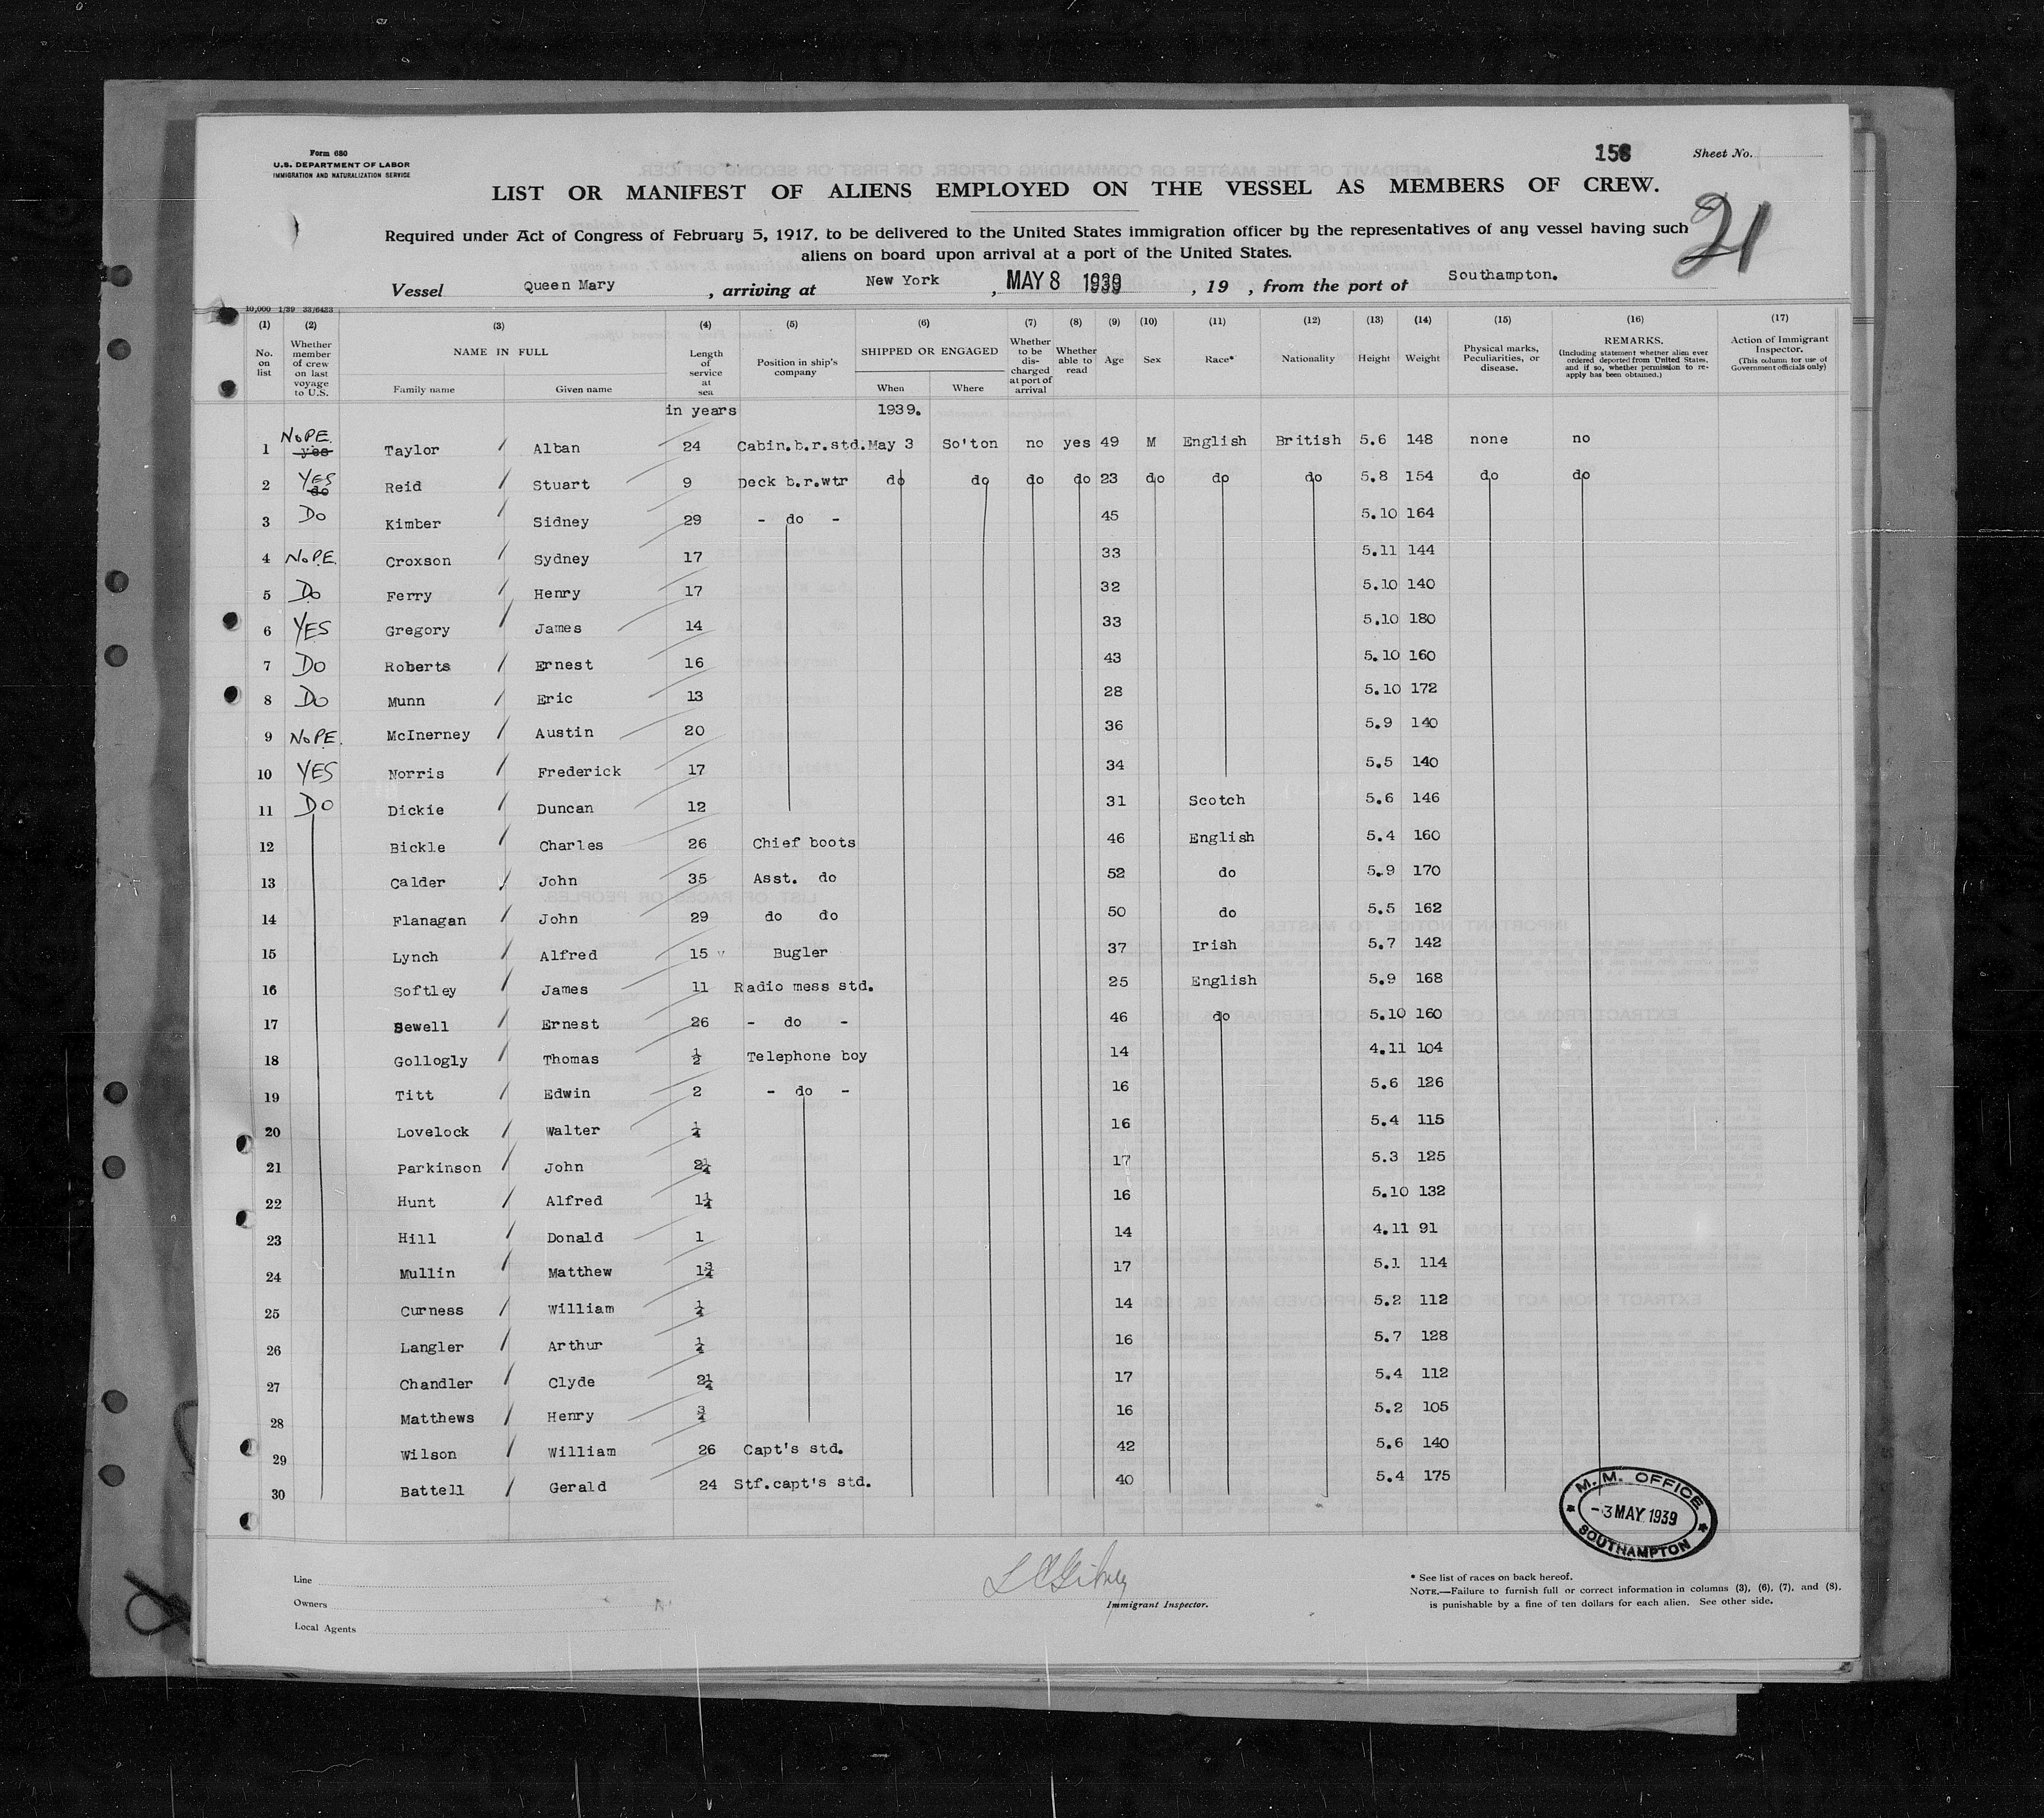 Form 680
U.S. DEPARTMENT OF LABOR
IMMIGRATION AND NATURALIZATION SERVICE
156 Sheet No.
21
LIST OR MANIFEST OF ALIENS EMPLOYED ON THE VESSEL AS MEMBERS OF CREW.
Required under Act of Congress of February 5, 1917, to be delivered to the United States immigration officer by the representatives of any vessel having such
aliens on board upon arrival at a port of the United States.
Vessel Queen Mary, arriving at New York, MAY 8 1939, 19 , from the port of Southampton.
10,000 1/39 33/6433
(1) (2) (3) (4) (5) (6) (7) (8) (9) (10) (11) (12) (13) (14) (15) (16) (17)
No. on list
Whether member of crew on last voyage to U.S.
NAME IN FULL
Family name Given name
Length of service at sea
Position in ship's company
SHIPPED OR ENGAGED
When Where
Whether to be discharged at port of arrival
Whether able to read
Age
Sex
Race*
Nationality
Height
Weight
Physical marks, Peculiarities, or disease.
REMARKS.
(Including statement whether alien ever ordered deported from United States, and if so, whether permission to re-apply has been obtained.)
Action of Immigrant Inspector.
(This column for use of Government officials only)
in years 1939.
1 NOPE. yes Taylor / Alban 24 Cabin.b.r.std. May 3 So'ton no yes 49 M English British 5.6 148 none no
2 YES do Reid / Stuart 9 Deck b.r.wtr do do do do 23 do do do 5.8 154 do do
3 Do Kimber / Sidney 29 - do - 45 5.10 164
4 NOPE. Croxson / Sydney 17 33 5.11 144
5 Do Ferry / Henry 17 32 5.10 140
6 YES Gregory / James 14 33 5.10 180
7 DO Roberts / Ernest 16 43 5.10 160
8 DO Munn / Eric 13 28 5.10 172
9 NOPE. McInerney / Austin 20 36 5.9 140
10 YES Norris / Frederick 17 34 5.5 140
11 DO Dickie / Duncan 12 31 Scotch 5.6 146
12 Bickle / Charles 26 Chief boots 46 English 5.4 160
13 Calder / John 35 Asst. do 52 do 5.9 170
14 Flanagan / John 29 do do 50 do 5.5 162
15 Lynch / Alfred 15 Bugler 37 Irish 5.7 142
16 Softley / James 11 Radio mess std. 25 English 5.9 168
17 Sewell / Ernest 26 - do - 46 do 5.10 160
18 Gollogly / Thomas ½ Telephone boy 14 4.11 104
19 Titt / Edwin 2 - do - 16 5.6 126
20 Lovelock / Walter ¼ 16 5.4 115
21 Parkinson / John 2¼ 17 5.3 125
22 Hunt / Alfred 1¼ 16 5.10 132
23 Hill / Donald 1 14 4.11 91
24 Mullin / Matthew 1¾ 17 5.1 114
25 Curness / William ¼ 14 5.2 112
26 Langler / Arthur ¼ 16 5.7 128
27 Chandler / Clyde 2¼ 17 5.4 112
28 Matthews / Henry ¾ 16 5.2 105
29 Wilson / William 26 Capt's std. 42 5.6 140
30 Battell / Gerald 24 Stf.capt's std. 40 5.4 175
M.M. OFFICE
-3 MAY 1939
SOUTHAMPTON
Line
Owners
Local Agents
Immigrant Inspector.
* See list of races on back hereof.
NOTE.—Failure to furnish full or correct information in columns (3), (6), (7), and (8),
is punishable by a fine of ten dollars for each alien. See other side.